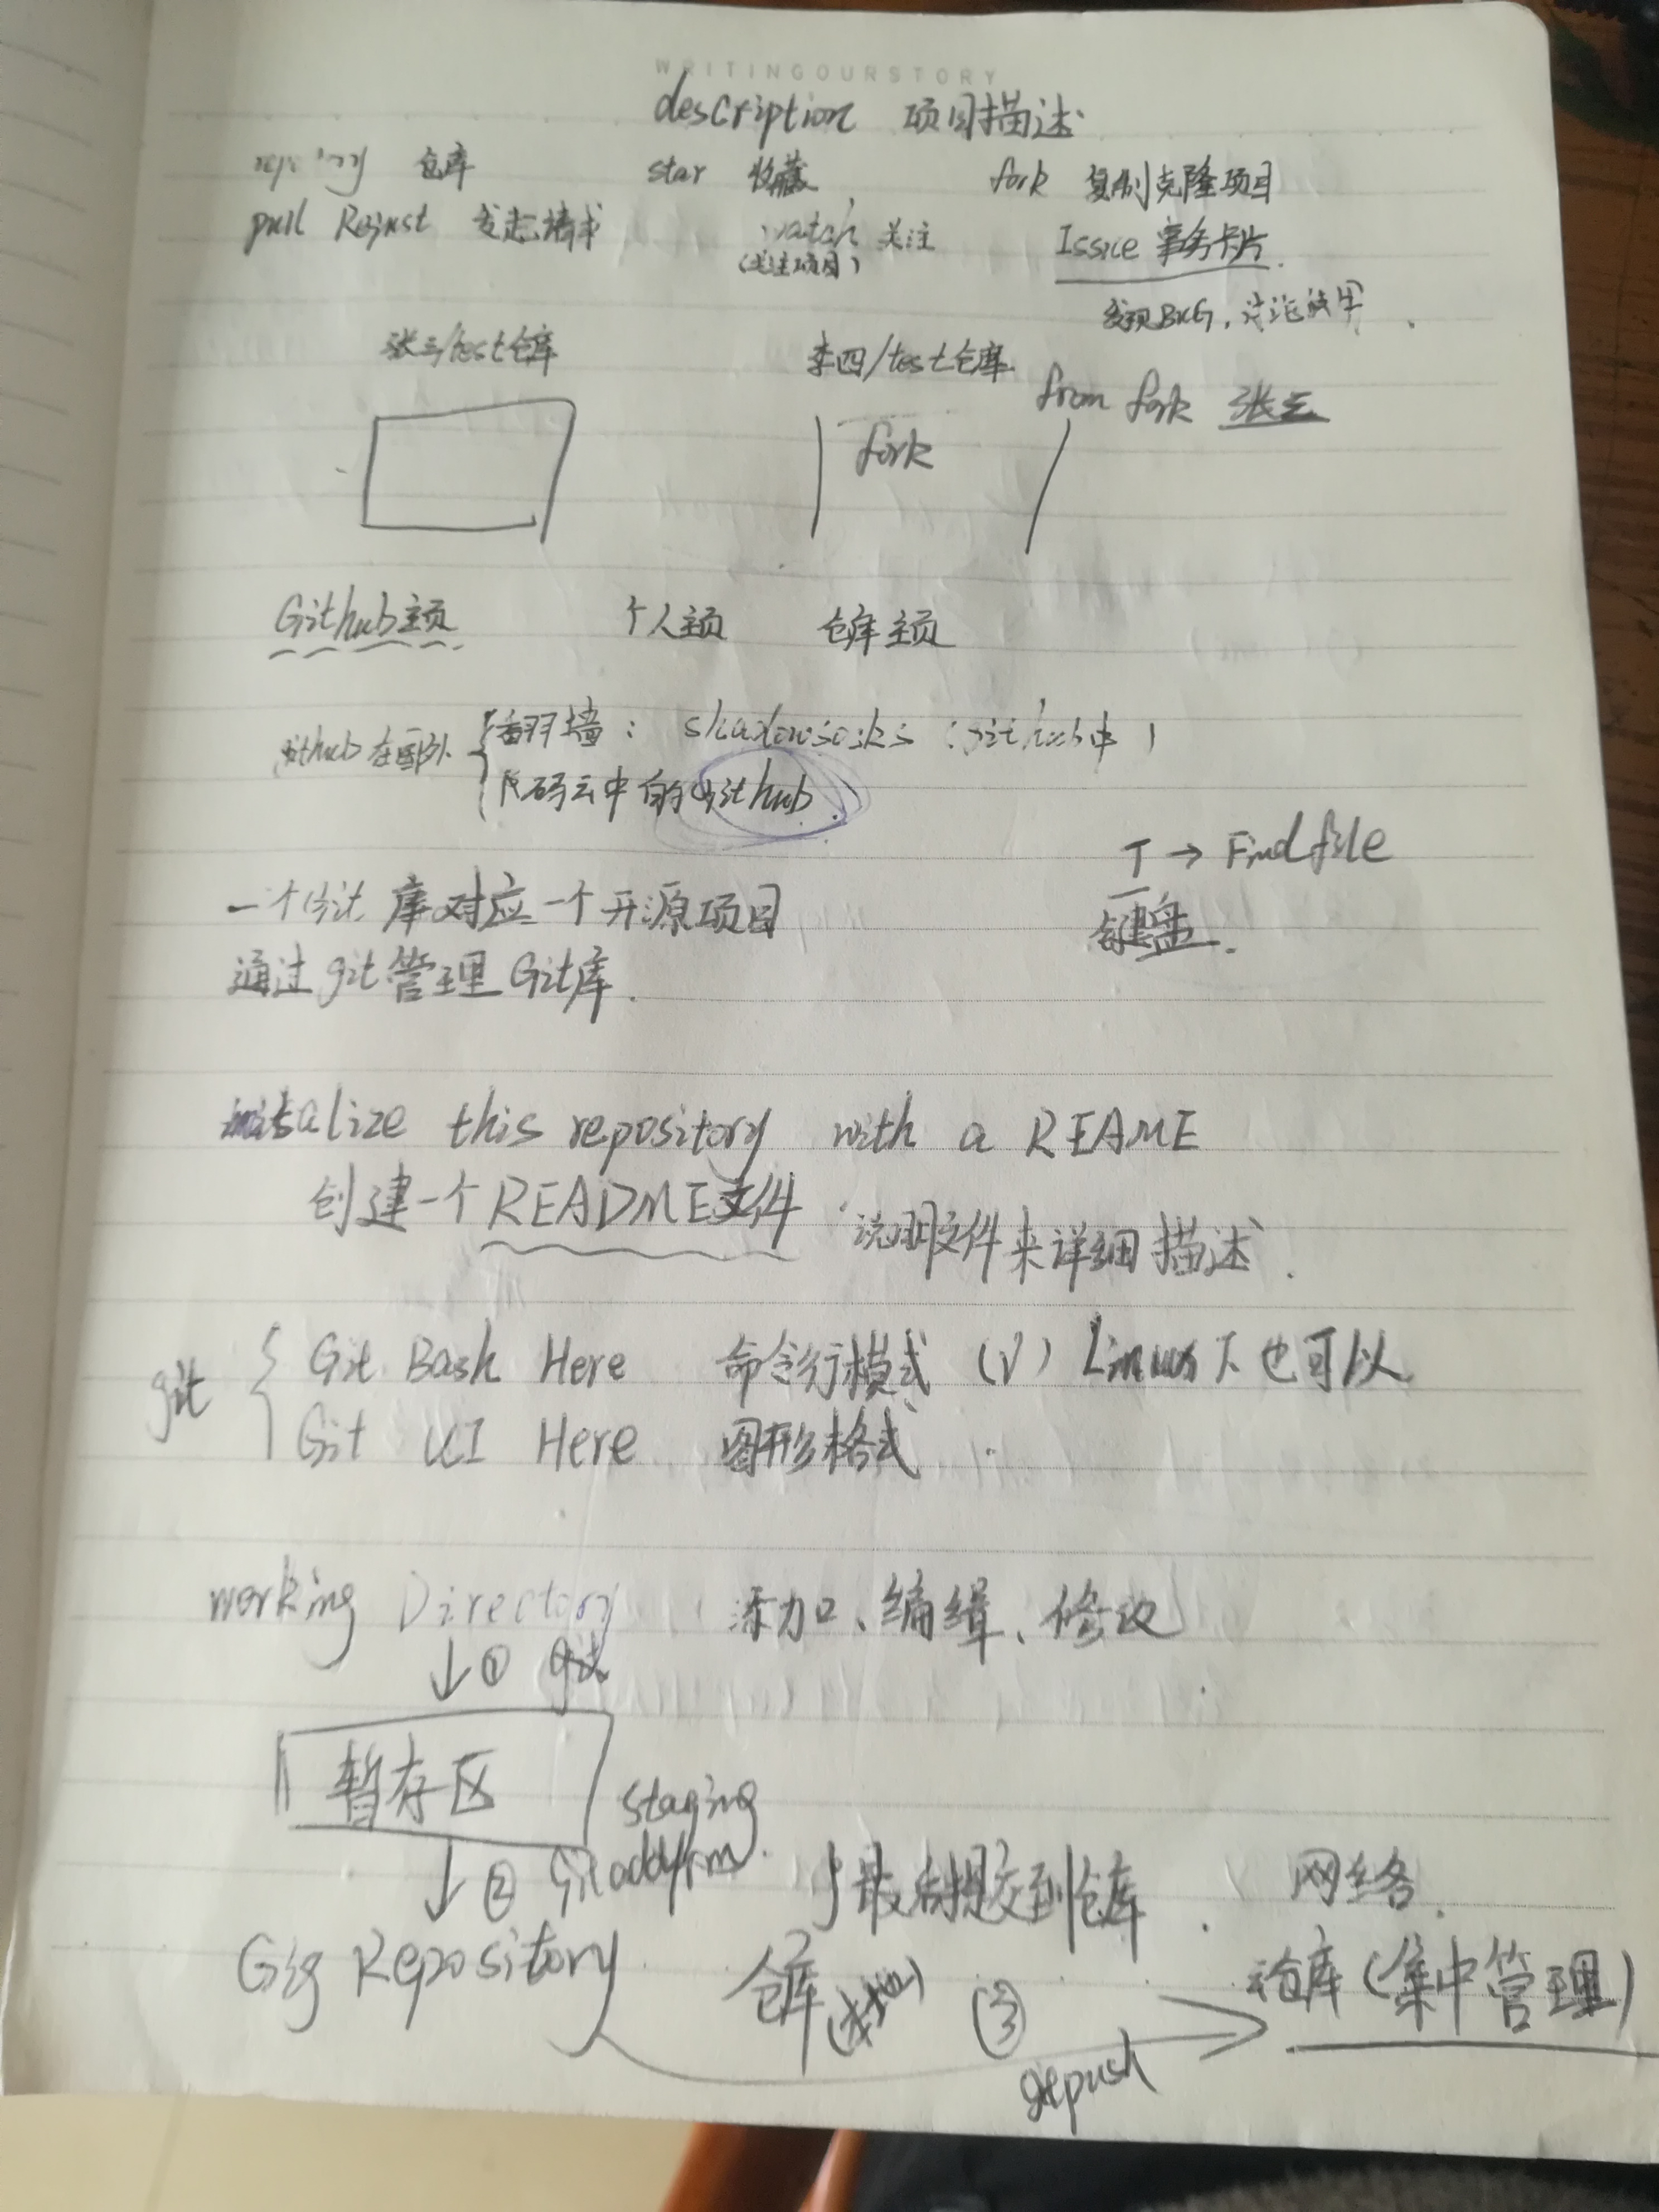 WRITINGOURSTORY
description 项目描述
仓库 star 收藏 fork 复制克隆项目
pull Request 发起请求 watch 关注 Issue 事务卡片
(关注项目)
发现BUG,讨论
张三/test仓库 李四/test仓库
from fork 张三
fork
Github主页 个人主页 仓库主页
github在国外 翻墙: shadowsocks (github中)
码云中的github
T → Find file
键盘.
一个Git 库对应一个开源项目
通过git管理Git库.
initalize this repository with a REAME
创建一个README文件 说明文件来详细描述.
git Git Bash Here 命令行模式 (√) Linux下也可以
Git UI Here 图形格式
working Directory 添加、编辑、修改
↓ ① git
暂存区
staging
↓ ② Git add/rm 最后提交到仓库. 网络.
Gig Repository 仓库(本地) ③ 仓库(集中管理)
git push